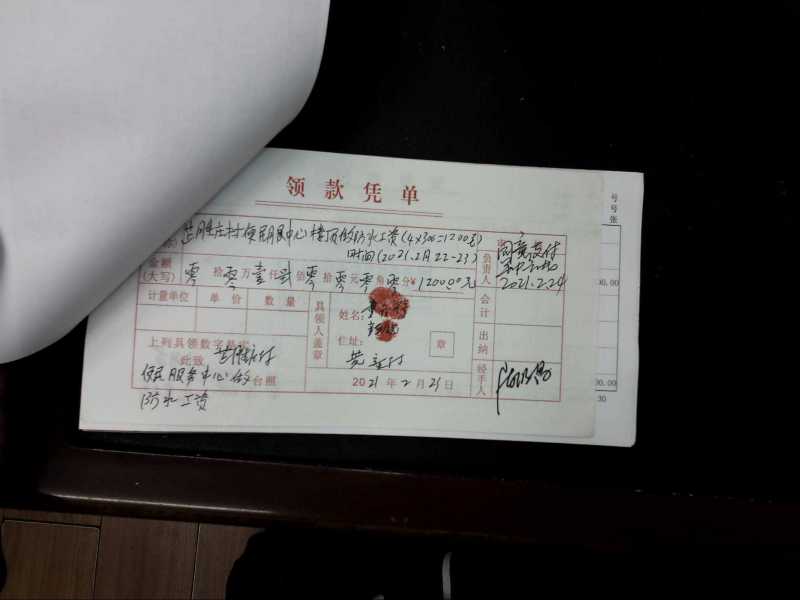 领款凭单
庄村便民中心楼顶做防水工资(4×300=1200元)
时间(2021.2月22-23)
金额
(大写) 零拾零万壹仟贰佰零拾零元零角零分¥1200.00元
负责人
同意支付
2021.2.24
计量单位 单价 数量
具领人盖章
姓名:
住址:
章
会计
出纳
经手人
上列具领数字
此致
便民服务中心做 台照
防水工资
2021年2月25日
号
号
张
00.00
00.00
30